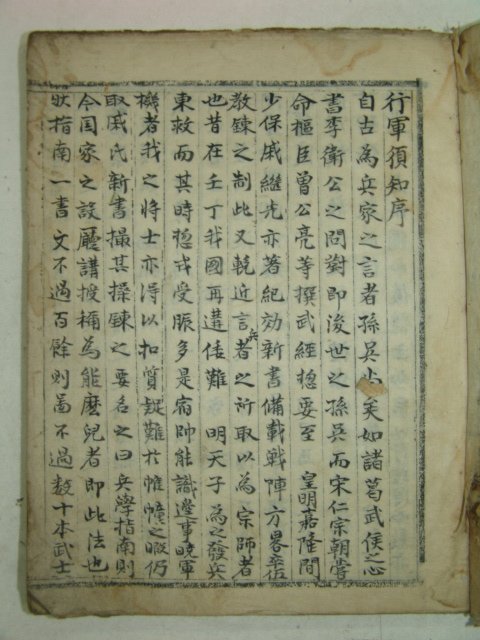 行軍須知序
自古為兵家之言者孫吳尚矣如諸葛武侯之心
書李衛公之問對即後世之孫吳而宋仁宗朝嘗
命樞臣曾公亮等撰武經摠要至 皇明嘉隆間
少保戚継光亦著紀効新書備載戦陣方畧卒伍
教鍊之制此又輓近言兵者之所取以為宗師者
也昔在壬丁我國再遘倭難 明天子為之發兵
東救而其時摠戎受脤多是宿帥能識邊事曉軍
機者我之將士亦得以扣質疑難於帷幨之暇仍
取戚氏新書撮其操鍊之要名之曰兵學指南則
今国家之設廳講授稱為能麽兒者即此法也
指南一書文不過百餘則啚不過数十本武士